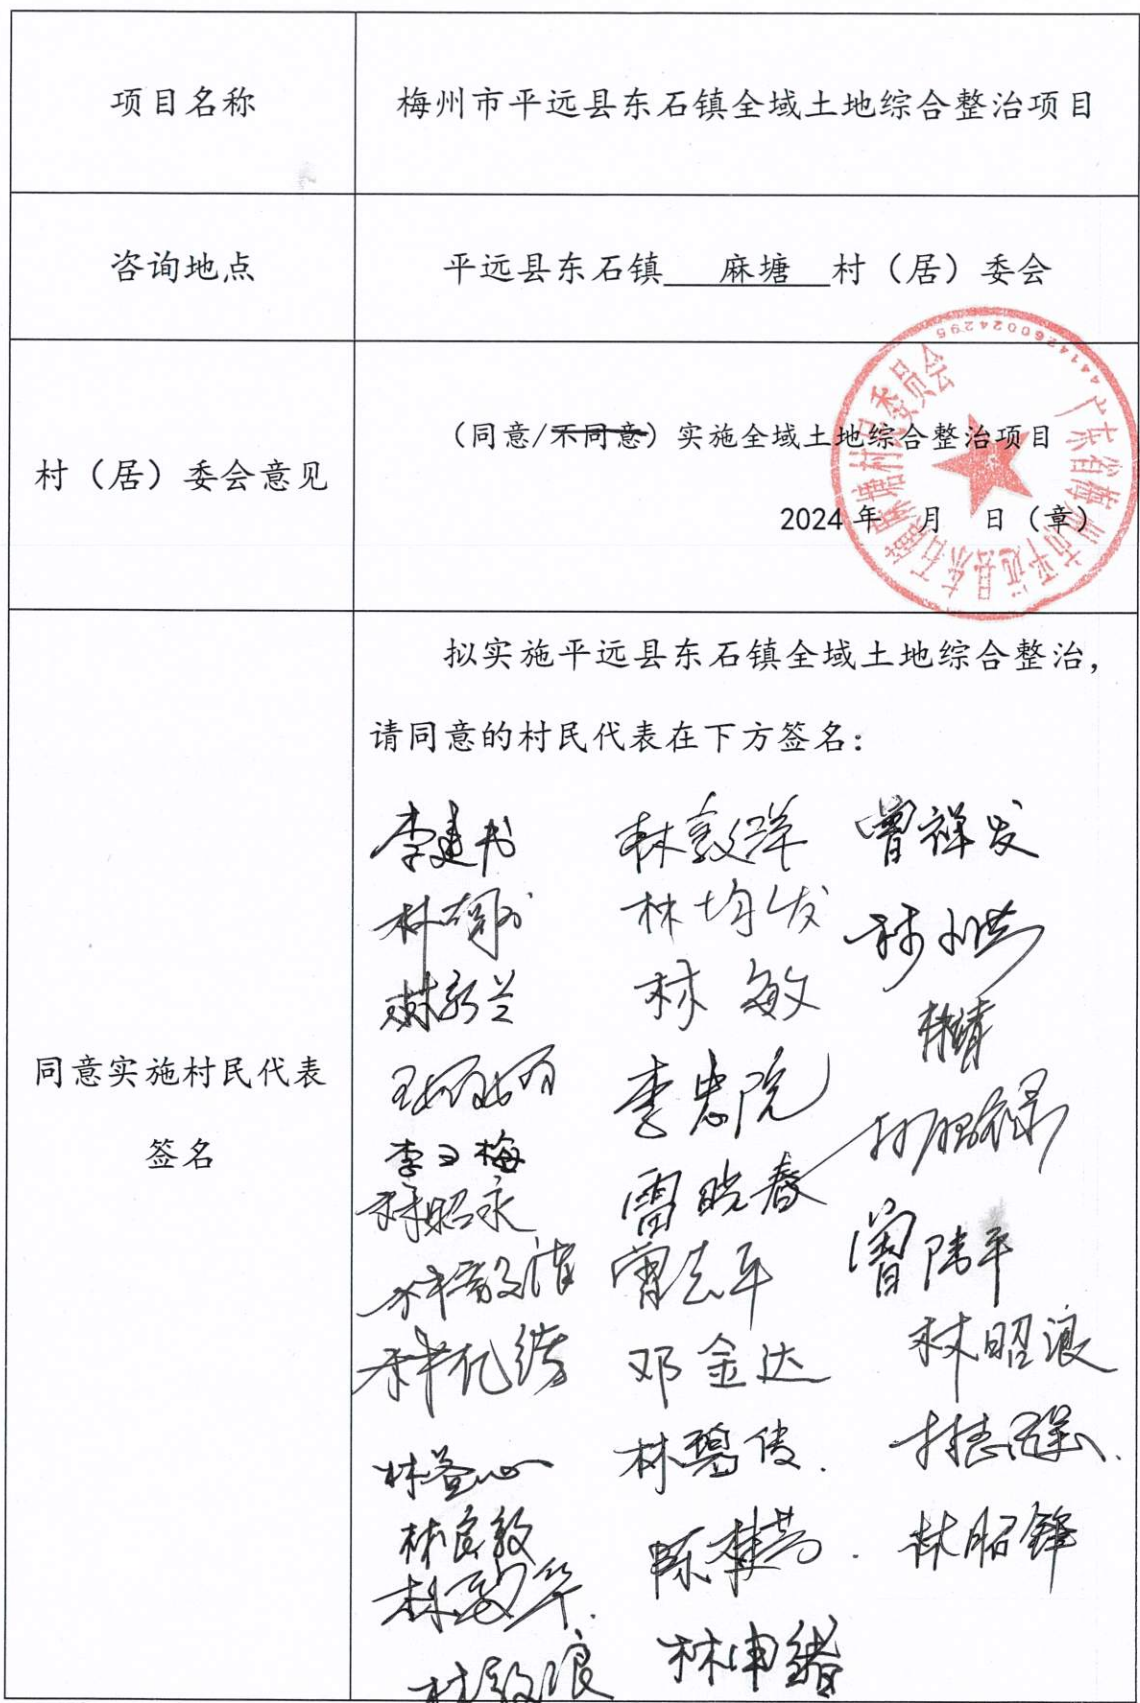 项目名称
梅州市平远县东石镇全域土地综合整治项目
咨询地点
平远县东石镇 麻塘 村（居）委会
村（居）委会意见
（同意/不同意）实施全域土地综合整治项目
2024年 月 日（章）
广东省梅州市平远县东石镇麻塘村民委员会
4414260024295
同意实施村民代表
签名
拟实施平远县东石镇全域土地综合整治，
请同意的村民代表在下方签名：
李建书 林敦洋 曾祥发
林均发
林新兰 林敏
林靖
李忠院
李又梅 雷晓春
林昭永 曾志平 曾伟平
林敦清
林纪绣 邓金达 林昭浪
林碧倩
林良敦 林昭锋
林敦华
林敦浪 林申绪